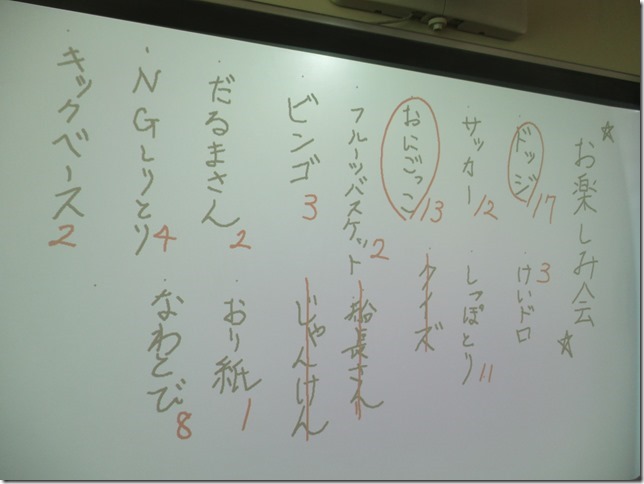 ☆お楽しみ会☆
・ドッジ 17
・けいドロ 3
・サッカー 12
・しっぽとり 11
・おにごっこ 13
・クイズ
・フルーツバスケット 2
・船長さん
・ビンゴ 3
・じゃんけん
・だるまさん 2
・おり紙 1
・NGしりとり 4
・なわとび 8
・キックベース 2